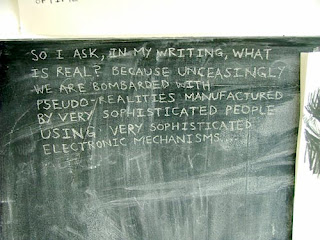 SO I ASK, IN MY WRITING, WHAT
IS REAL? BECAUSE UNCEASINGLY
WE ARE BOMBARDED WITH
PSEUDO-REALITIES MANUFACTURED
BY VERY SOPHISTICATED PEOPLE
USING VERY SOPHISTICATED
ELECTRONIC MECHANISMS...